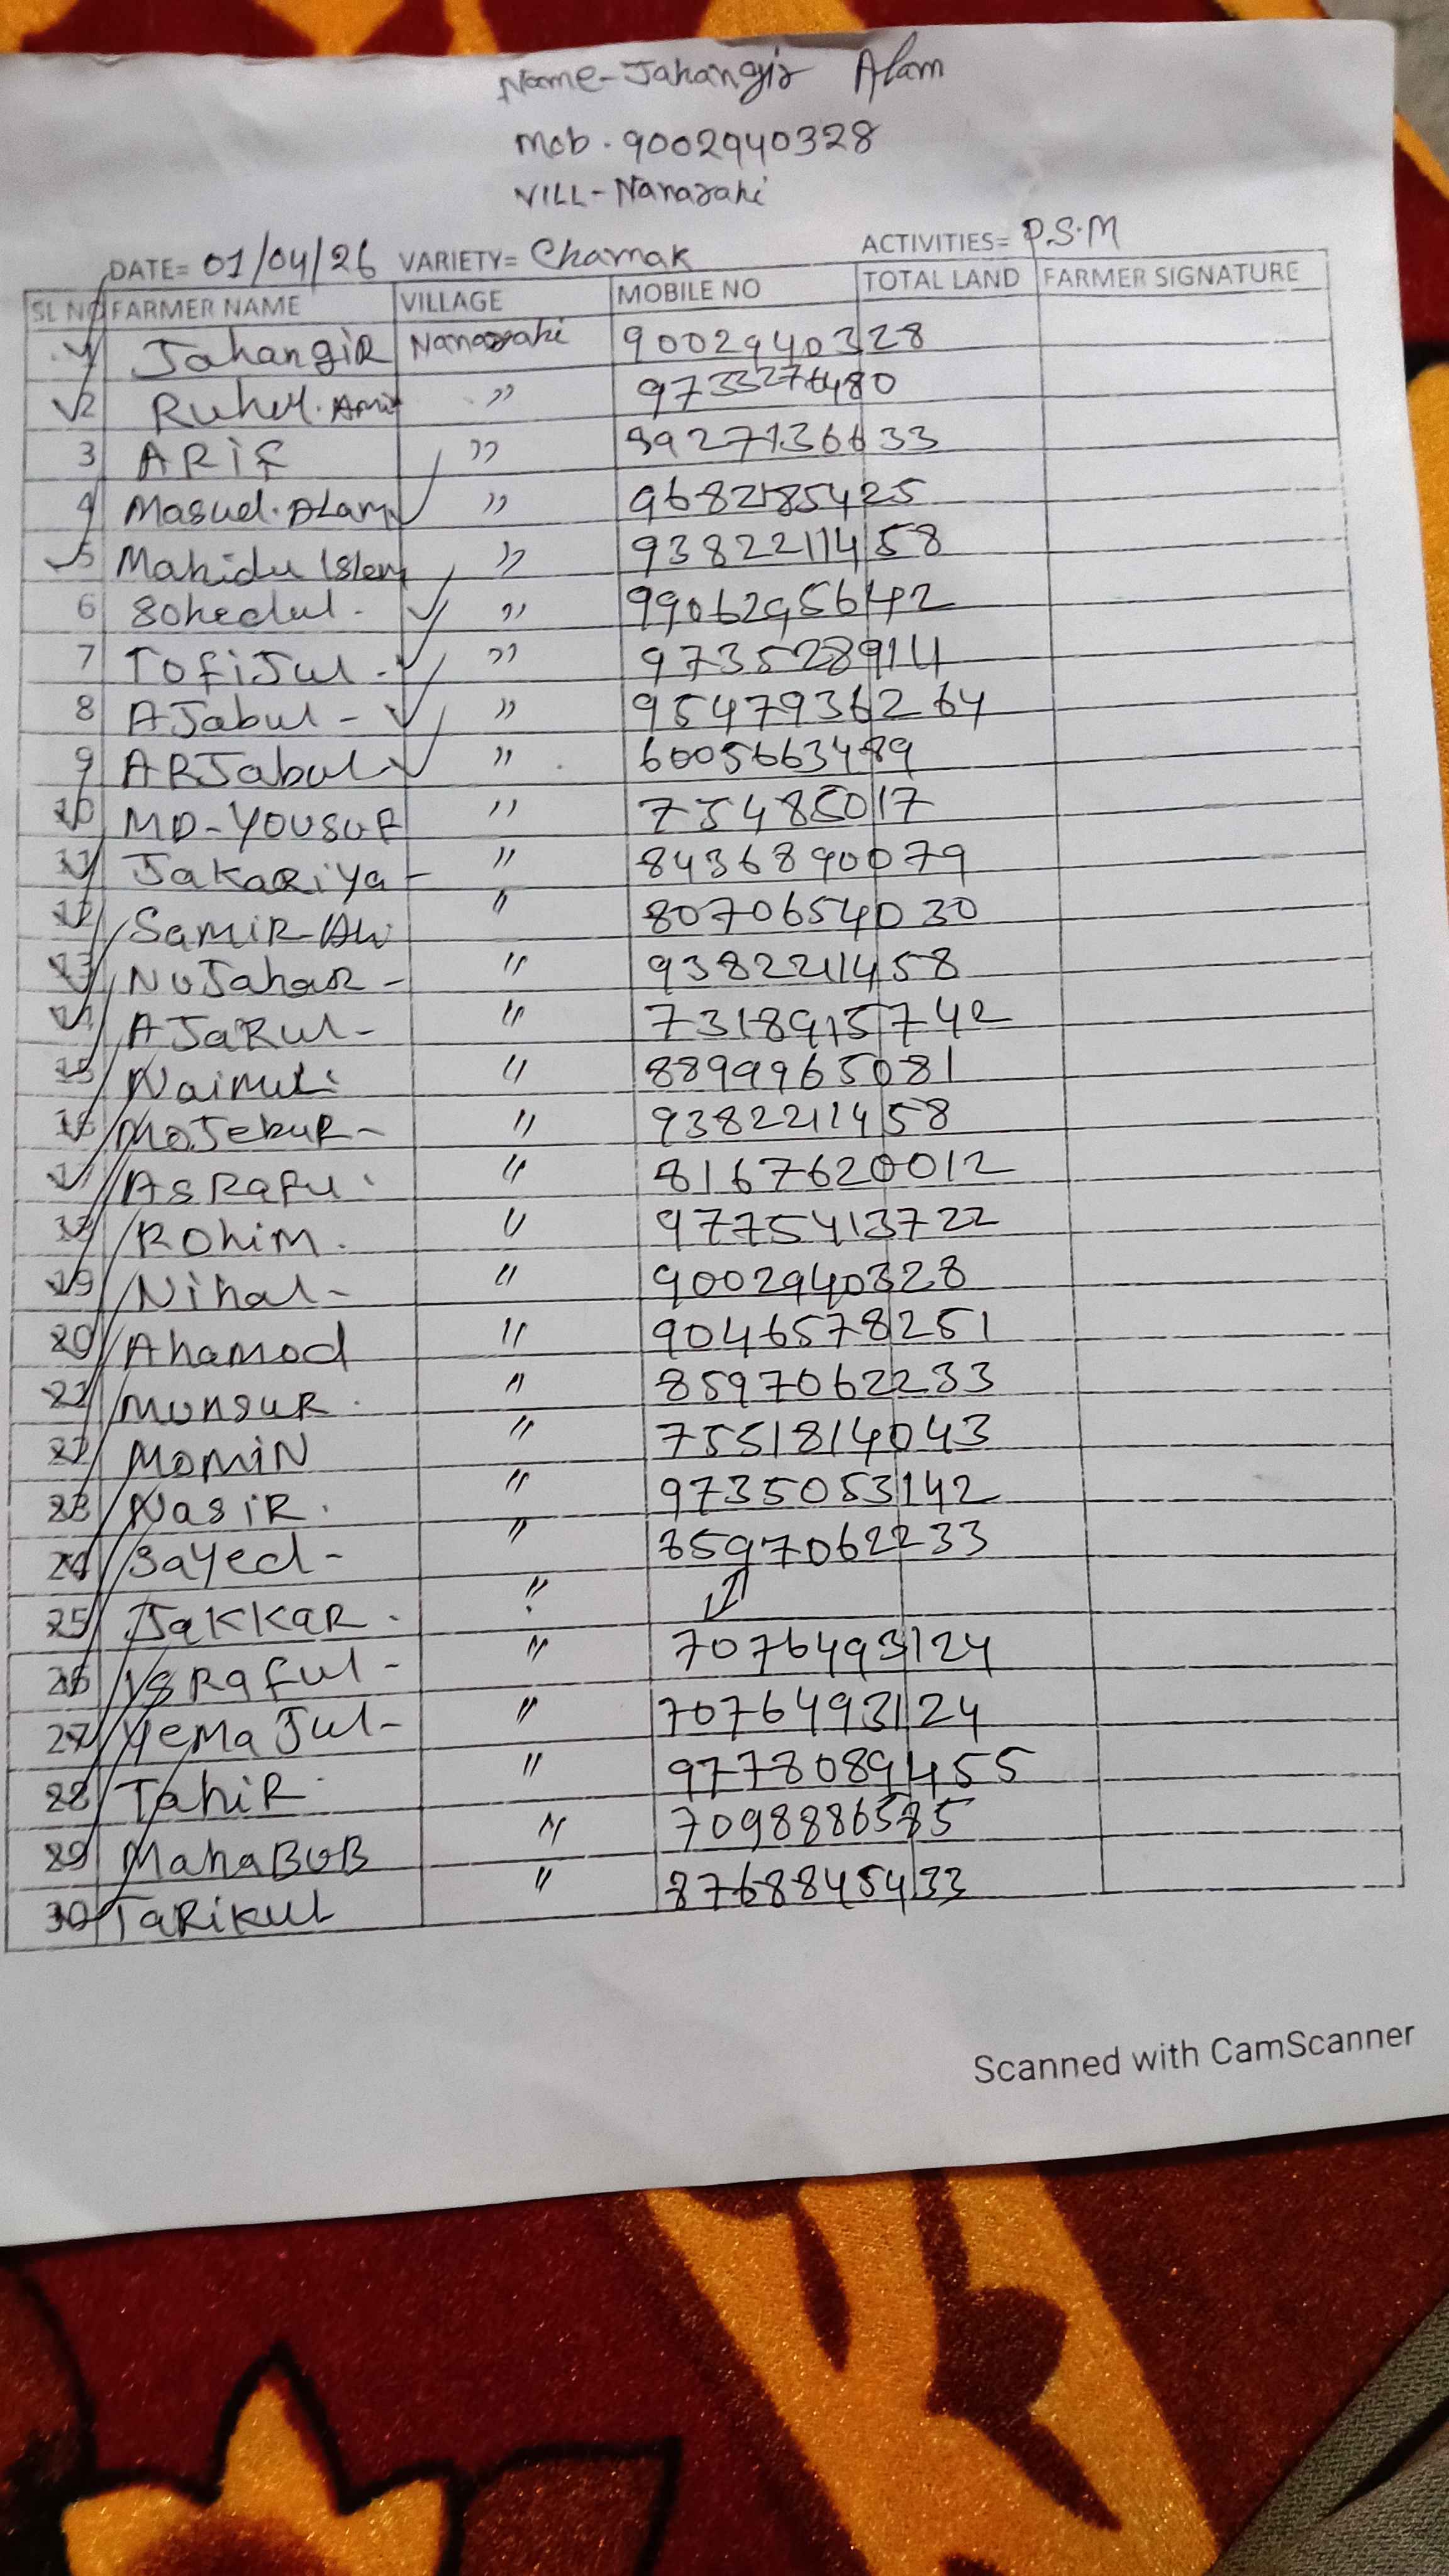 Name-Jahangir Alam
Mob. 9002940328
VILL-Nanarahi
DATE= 01/04/26 VARIETY= Chamak ACTIVITIES= P.S.M
SL NO FARMER NAME VILLAGE MOBILE NO TOTAL LAND FARMER SIGNATURE
1 JahangiR Nanarahi 9002940328
2 Ruhul. Amin " 9733276480
3 ARiF " 9927136633
4 Masud. ALam " 9682185425
5 Mahidu Islam " 9382211458
6 Sohedul - " 9906295642
7 TofiJul - " 973528914
8 AJabul - " 9547936264
9 ARJabul " 6005663489
10 MD-YOUSUF " 75485017
11 JakaRiya - " 8436890079
12 SamiR-Ali " 8070654030
13 NuJahaR - " 9382211458
14 AJaRul - " 7318915742
15 Naimul " 8899965081
16 MoJebuR - " 9382211458
17 AsRafu " 8167620012
18 Rohim. " 9775413722
19 Nihal - " 9002940328
20 Ahamod " 9046578251
21 MunsuR. " 8597062233
22 MomiN " 7551814043
23 NasiR. " 9735053142
24 Sayed - " 8597062233
25 JakkaR. " "
26 ISRaful - " 7076493124
27 YeMaJul - " 7076493124
28 TahiR " 9778089455
29 MahaBUB " 7098886585
30 TaRikuL " 8768845433
Scanned with CamScanner